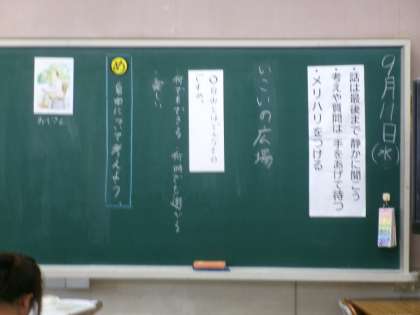 9月11日(水)
・話は最後まで静かに聞こう
・考えや質問は手をあげて待つ
・メリハリをつける
いこいの広場
○自由とはどんなもの
ですか。
何でもできる
・楽しい
め
自由について考えよう。